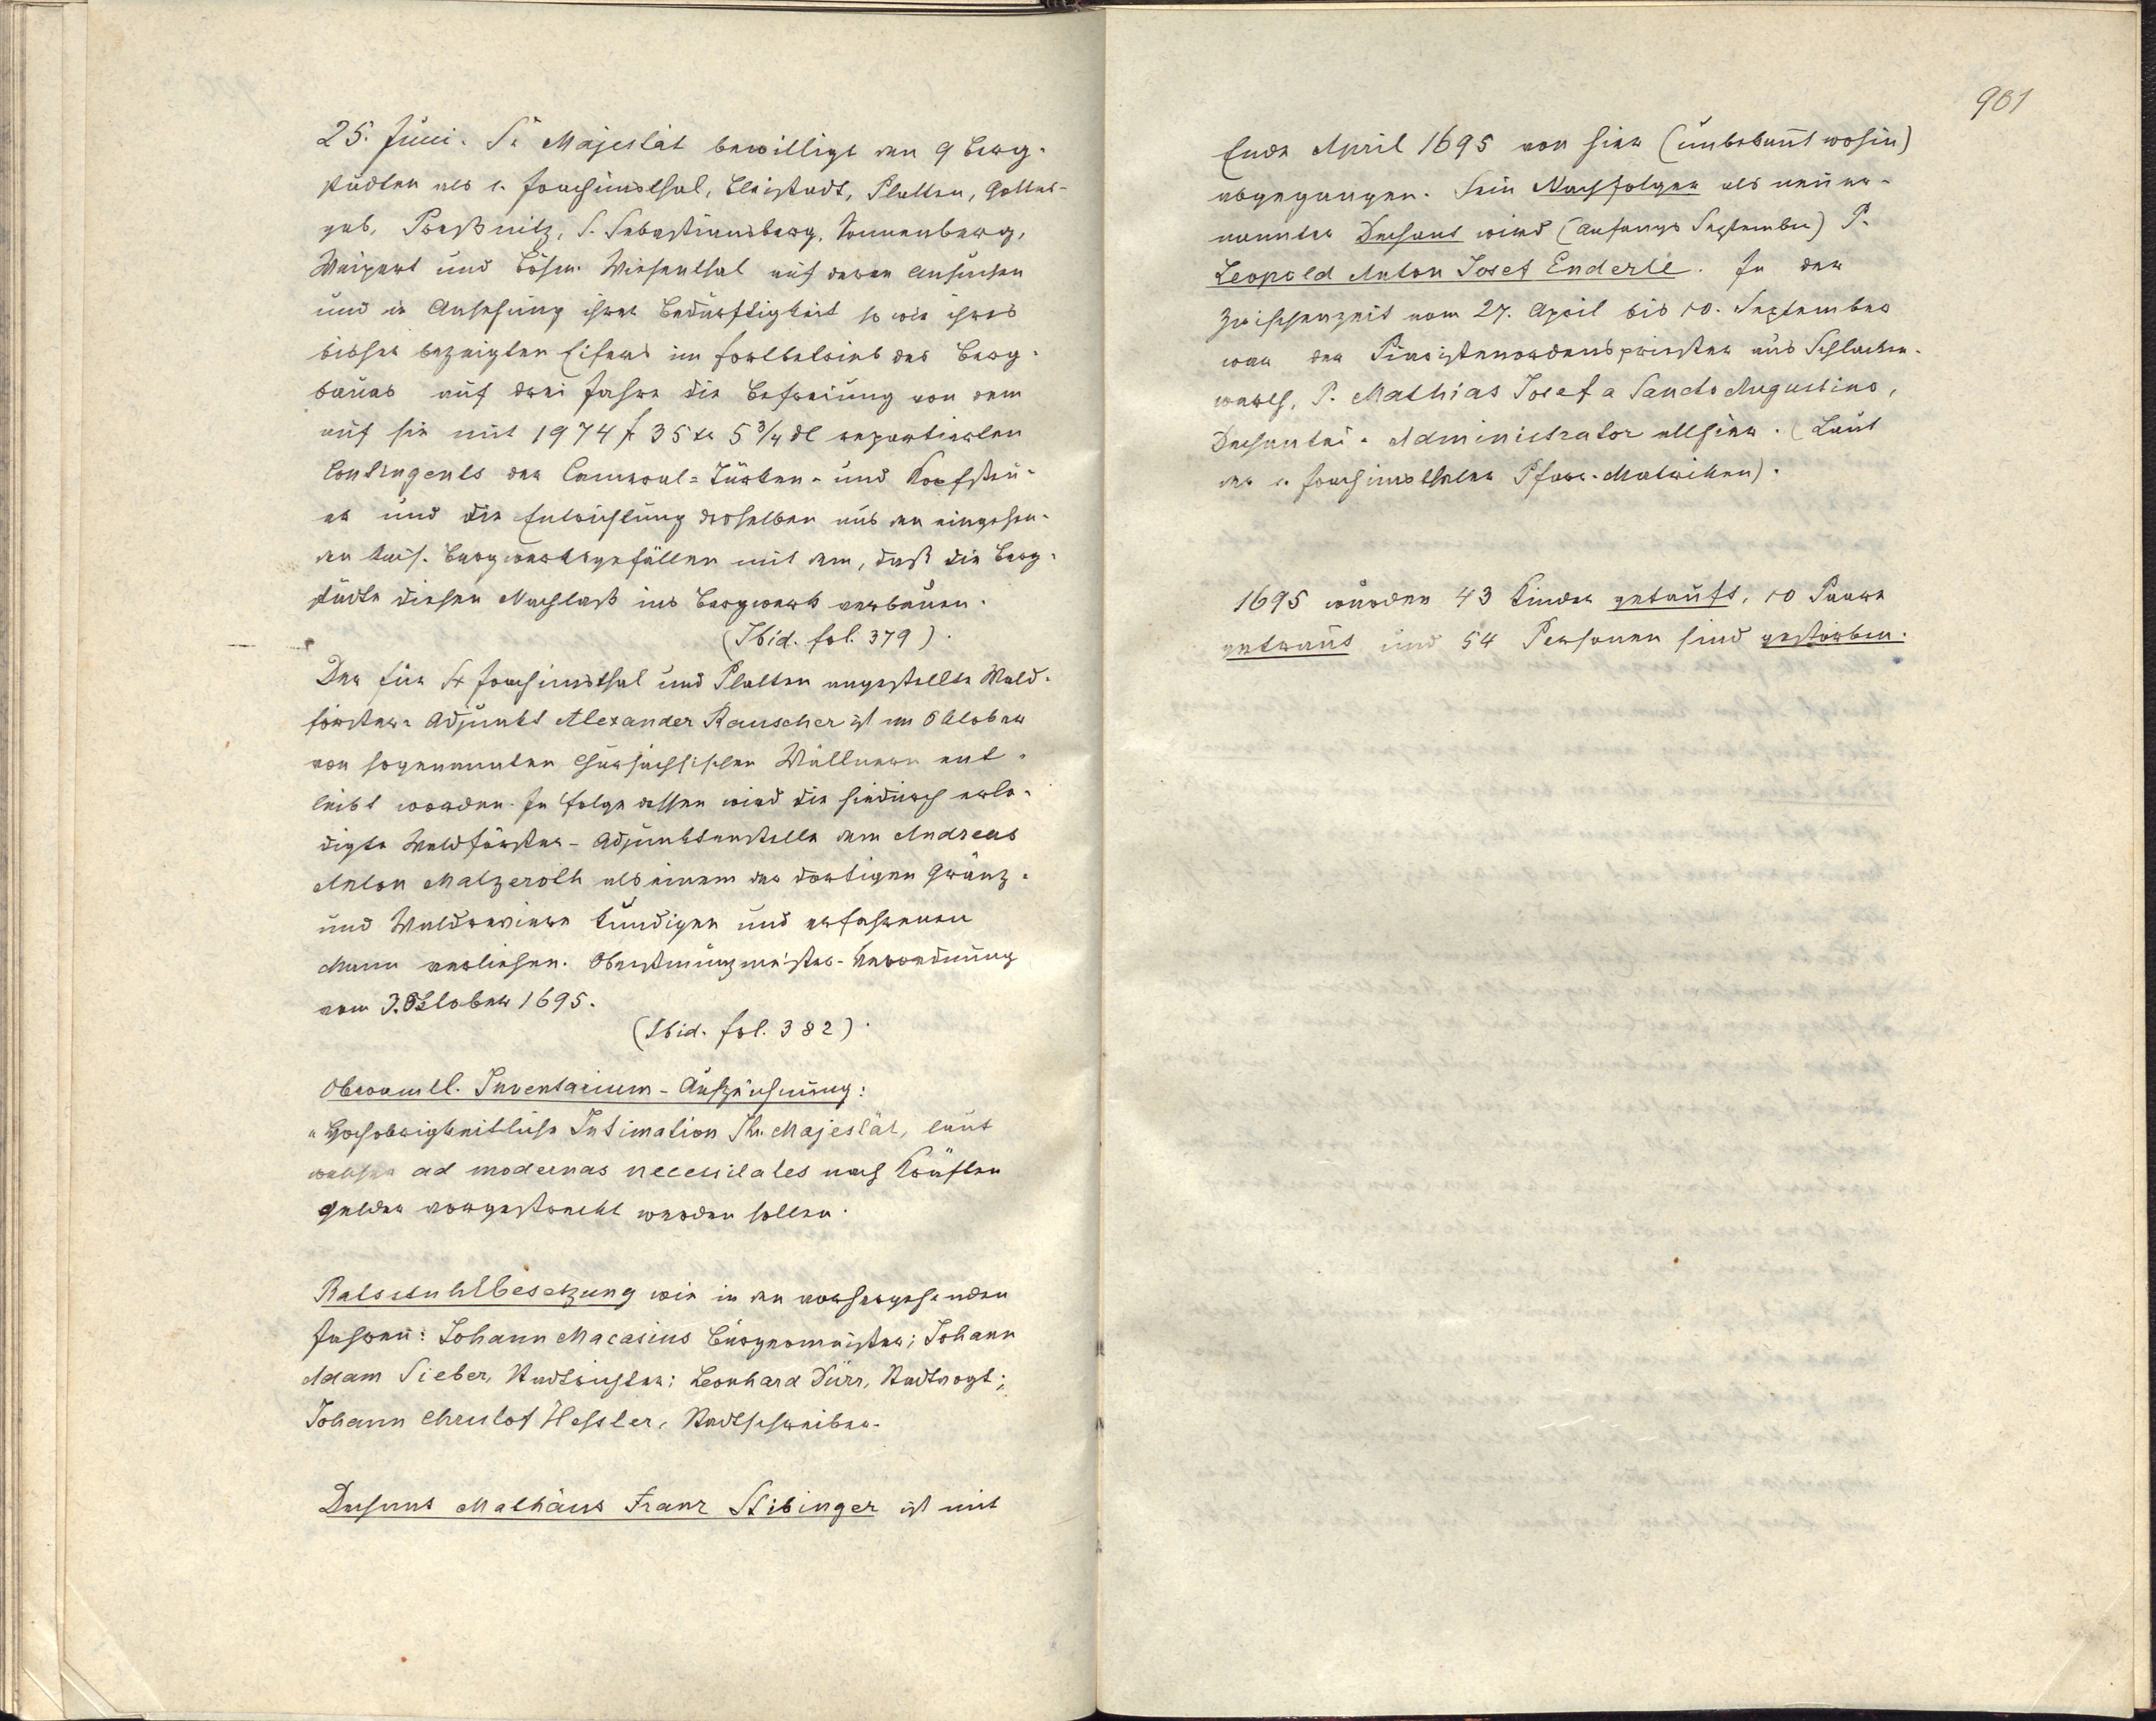 25. Juni. Sr Majestät bewilligt den 9 Berg-
städten als s. Joachimsthal, Bleistadt, Platten, Gottes-
gab, Preßnitz, S. Sebastiansberg, Sonnenberg,
Weipert und Böhm. Wiesenthal auf deren Ansuchen
und in Ansehung ihrer Bedürftigkeit so wie ihres
bisher bezeigten Eifers im Fortbetrieb des Berg-
baues auf drei Jahre die Befreiung von dem
auf sie mit 1974 f 35 xr 5 3/4 dl repartierten
Contingents der Cameral-Türken- und Kopfsteu-
er und die Entrichtung desselben aus den eingehen-
den kais. Bergwerksgefällen mit dem, daß die Berg-
städte diesen Nachlaß ins Bergwerk verbauen.
(Ibid. fol. 379).
Der für St Joachimsthal und Platten angestellte Wald-
förster-Adjunkt Alexander Rauscher ist im Oktober
von sogenannten Chursächsischen Wällnern ent-
leibt worden. In Folge dessen wird die hiedurch erle-
digte Waldförster-Adjunktenstelle dem Andreas
Anton Matzeroth als einem der dortigen Gränz-
und Waldreviere kundigen und erfahrenen
Mann verliehen. Oberstmünzmeister-Verordnung
vom 3. Oktober 1695.
(Ibid. fol. 382).
Oberamtl. Inventarium-Aufzeichnung:
"Hochobrigkeitliche Intimation Ihr. Majestät, laut
welcher ad modernas necessitates nach Kräften
Gelder vorgestreckt werden sollen.
Ratsstuhlbesetzung wie in den vorhergehenden
Jahren: Johann Macasius Bürgermeister; Johann
Adam Sieber, Stadtrichter; Leonhard Dürr, Stadtvogt;
Johann Christof Hessler, Stadtschreiber.
Dechant Mathäus Franz Stibinger ist mit
901
Ende April 1695 von hier (unbekannt wohin)
abgegangen. Sein Nachfolger als neuer-
nannter Dechant wird (Anfangs September) P.
Leopold Anton Josef Enderle. In der
Zwischenzeit vom 27. April bis 10. September
war der Piaristenordenspriester aus Schlacken-
werth, P. Mathias Josef a Sancto Augustino,
Dechantei-Administrator allhier. (Laut
der s. Joachimsthaler Pfarr-Matriken).
1695 wurden 43 Kinder getauft, 10 Paare
getraut und 54 Personen sind gestorben.